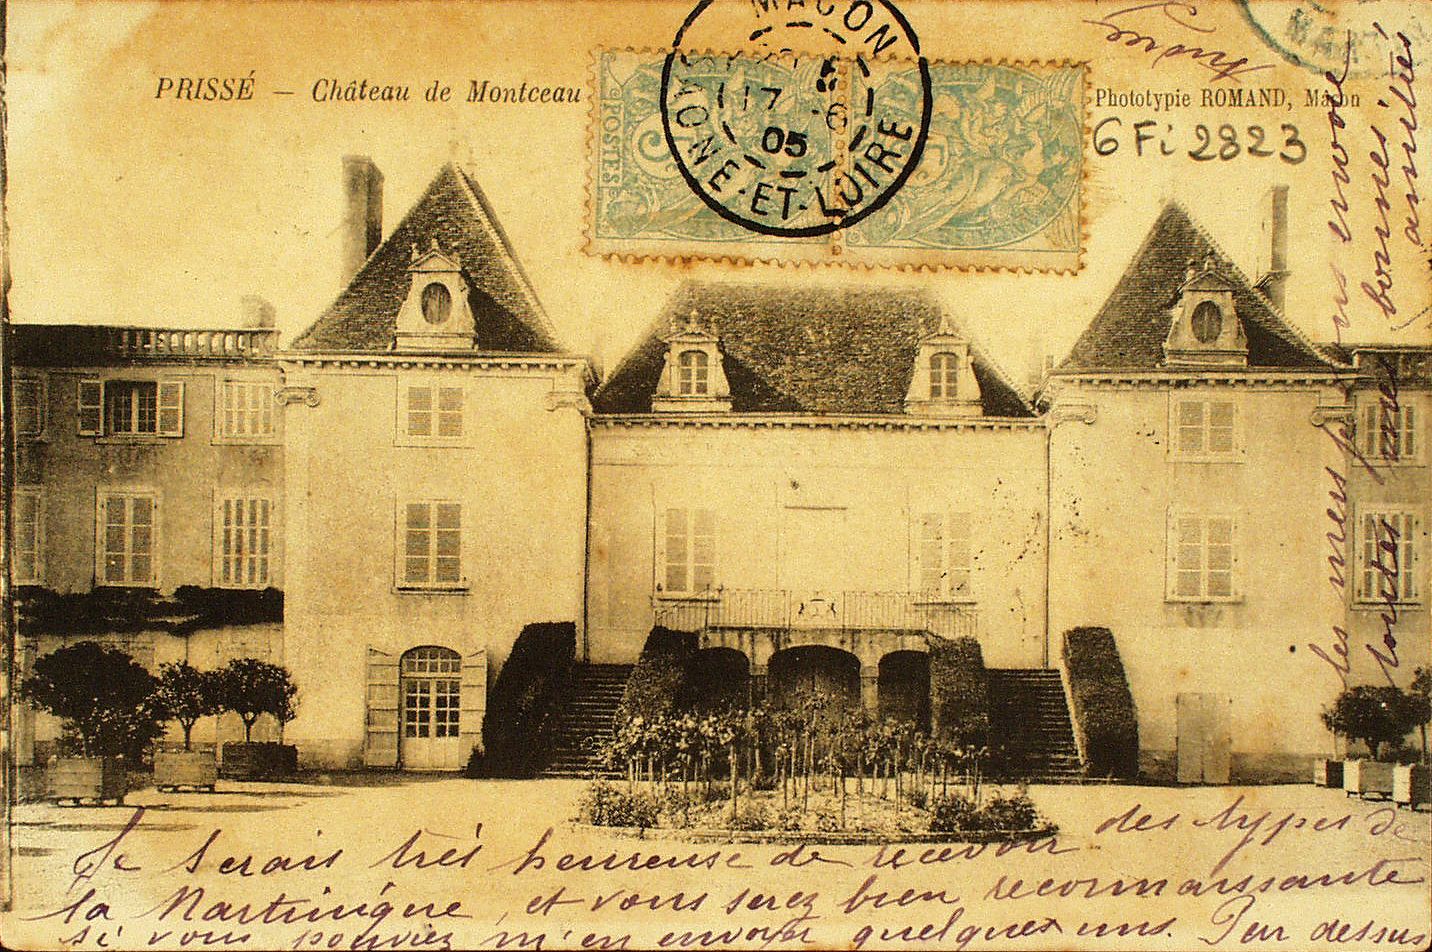 PRISSÉ — Château de Montceau
Phototypie ROMAND, Mâcon
6 Fi 2823
MACON
17 -6
05
SAONE-ET-LOIRE
POSTES
5
Je serais très heureuse de recevoir des types de
la Martinique, et vous serez bien reconnaissante
si vous pouviez m'en envoyer quelques uns. Par dessus
les mers je vous envoie
toutes mes bonnes amitiés